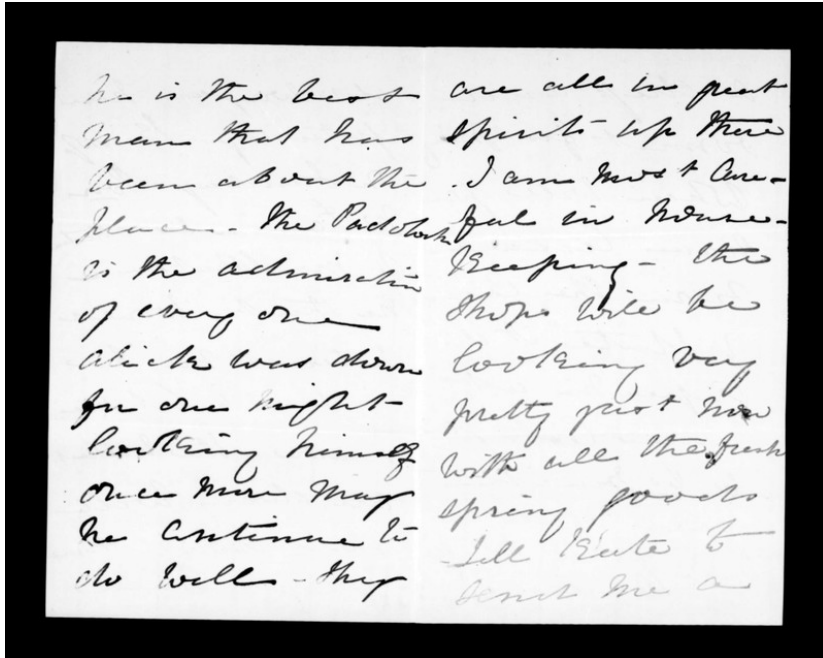 he is the best
man that has
been about the
place - the Paddock
is the admiration
of every one
Alick was down
for one night
looking himself
once more may
he continue to
do well - they
are all in great
spirits up there
. I am most care-
ful in house-
keeping - the
shops will be
looking very
pretty just now
with all the fresh
spring goods
- Tell Kate to
send me a